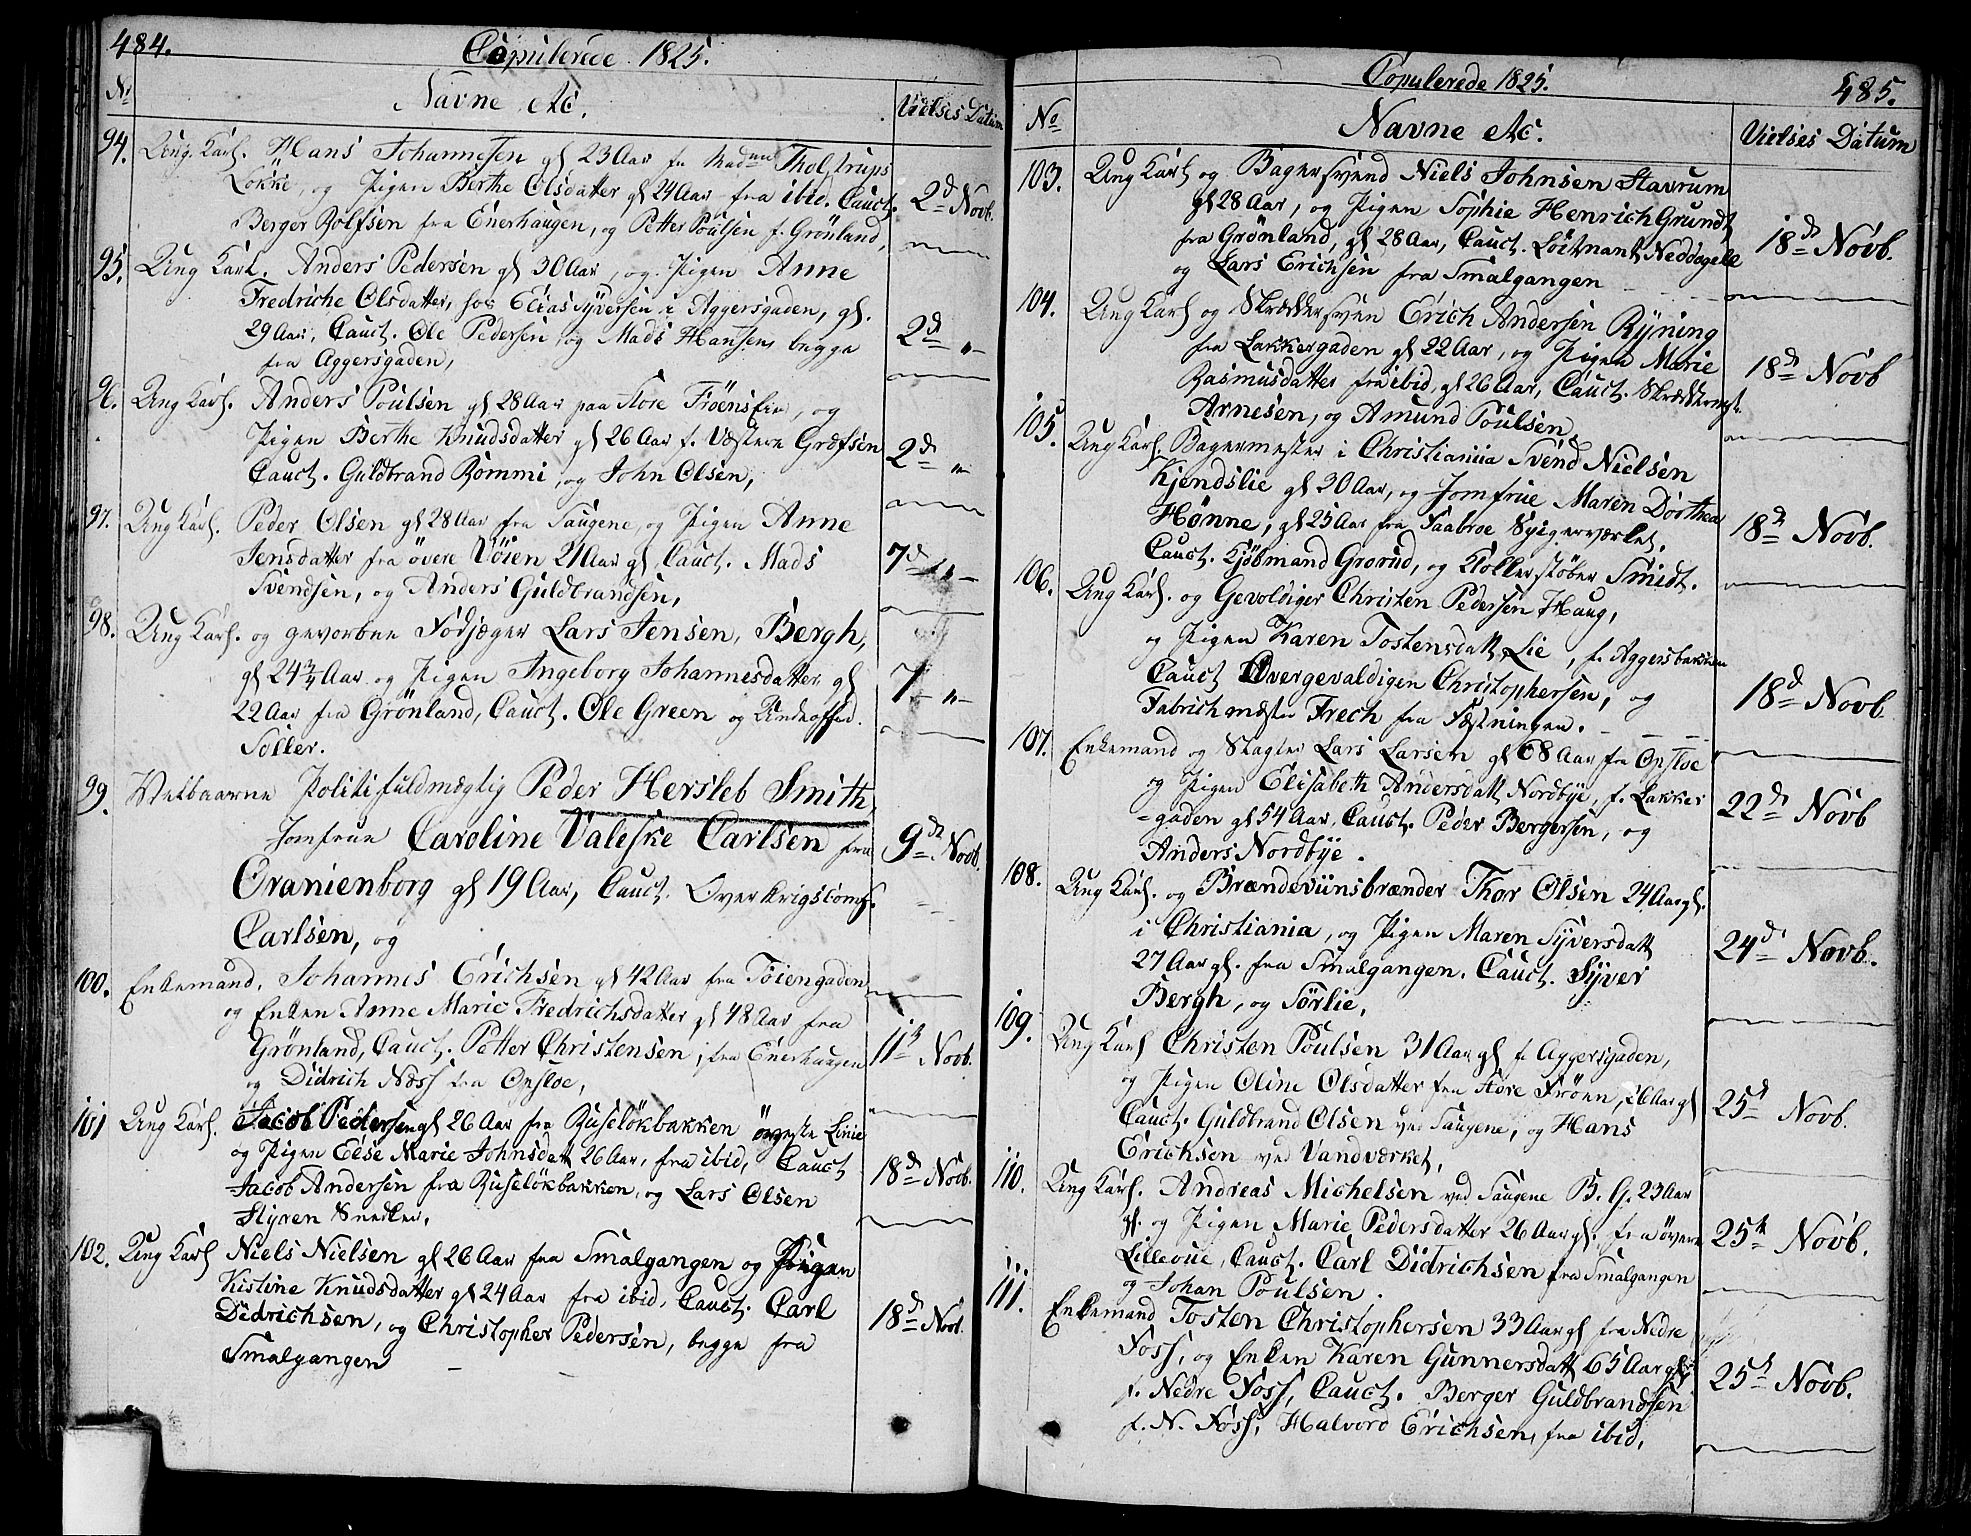 484.
Copulerede 1825.
No
Navne etc.
Vielses Datum
94. Ung Karl. Hans Johannesen gl 23 Aar fra Madme Tholstrups
Løkke, og Pigen Berthe Olsdatter gl 24 Aar fra ibid. Cauct.
Berger Rolfsen fra Enerhaugen, og Petter Poulsen f. Grönland,
2d Novb.
95. Ung Karl. Anders Pedersen gl 30 Aar, og Pigen Anne
Fredriche Olsdatter, hos Elias Syversen i Aggersgaden, gl.
29 Aar, Cauct. Ole Pedersen og Mads Hansen, begge
fra Aggersgaden,
2d "
96. Ung Karl. Anders Poulsen gl 28 Aar paa Store Fröenseie, og
Pigen Berthe Knudsdatter gl 26 Aar f. Västere Græfsen
Cauct. Guldbrand Rommi, og John Olsen,
2d "
97. Ung Karl. Peder Olsen gl 28 Aar fra Saugene, og Pigen Anne
Jensdatter fra övere Vöien 21 Aar gl Cauct. Mads
Svendsen, og Anders Guldbrandsen,
7d "
98. Ung Karl. og gevorben Fodjæger Lars Jensen, Bergh,
gl 24 3/4 Aar og Pigen Ingeborg Johannesdatter, gl
22 Aar fra Grönland, Cauct. Ole Green og Underoffod.
Soller.
7 "
99. Velbaarne Politifuldmægtig Peder Hersleb Smith,
Jomfrue Caroline Valeske Carlsen fra
Oranienborg gl 19 Aar, Cauct. Overkrigscoms.
Carlsen, og
9de Novb.
100. Enkemand. Johannes Erichsen gl 42 Aar fra Töiengaden
og Enken Anne Marie Fredrichsdatter gl 48 Aar fra
Grönland, Cauct. Petter Christensen, fra Enerhaugen
og Didrich Næss fra Opsloe,
11te Novb.
101 Ung Karl. Jacob Pedersen gl 26 Aar fra Ruseløkbakken överste Linie
og Pigen Else Marie Johnsdatt 26 Aar, fra ibid, Cauct
Jacob Andersen fra Ruseløkbakken, og Lars Olsen
Styren Snedker,
18de Novb.
102. Ung Karl Niels Nielsen gl 26 Aar fra Smalgangen og Pigen
Kistine Knudsdatter gl 24 Aar fra ibid, Cauct. Carl
Didrichsen, og Christopher Pedersen, begge fra
Smalgangen
18de Novb.
Copulerede 1825.
485.
No
Navne etc.
Vielses Datum
103. Ung Karl og Bagersvend Niels Johnsen Stavrum
gl 28 Aar, og Pigen Sophie Henrich Grundt
fra Grønland, gl 28 Aar, Cauct. Loitnant Neddagelle
og Lars Erichsen fra Smalgangen
18de Novb.
104. Ung Karl og Skræddersven Erich Andersen Ryning
fra Lakkergaden gl 22 Aar, og Pigen Marie
Rasmusdatter fra ibid, gl 26 Aar, Cauct. Skræddermst.
Arnesen, og Amund Poulsen
18de Novb
105. Ung Karl. Bagermester i Christiania Svend Nielsen
Kjendslie gl 30 Aar, og Jomfrue Maren Dorthea
Hønne, gl 25 Aar fra Faabroe Spigerværket,
Cauct. Kjøbmand Grorud, og Klokkerstøber Smidt.
18de Novb.
106. Ung Karl. og Gevoldiger Christen Pedersen Haug,
og Pigen Karen Tostensdatt Lie, f. Aggersbakken
Cauct Overgevaldigen Christophersen, og
Fabrichmæster Frech fra Fæstningen.
18de Novb.
107. Enkemand og Slagter Lars Larsen gl 68 Aar fra Opsloe
og Pigen Elisabeth Andersdatt Nordbye, f. Lakker
-gaden gl 54 Aar, Cauct. Peder Bergersen, og
Anders Nordbye.
22de Novb
108. Ung Karl. og Brændeviinsbrænder Thor Olsen 24 Aar gl.
i Christiania, og Pigen Maren Syversdatt
27 Aar gl. fra Smalgangen. Cauct. Syver
Bergh, og Sörlie,
24de Novb.
109. Ung Karl Christen Poulsen 31 Aar gl f. Aggersgaden,
og Pigen Oline Olsdatter fra Store Frøen, 26 Aar gl
Cauct. Guldbrand Olsen ved Saugene, og Hans
Erichsen ved Vandværket,
25d Novb.
110. Ung Karl. Andreas Michelsen ved Saugene B. G. 23 Aar
gl. og Pigen Marie Pedersdatter 26 Aar gl. fra övere
Lilleoue, Cauct. Carl Didrichsen fra Smalgangen
og Johan Poulsen.
25te Novb.
111. Enkemand Tosten Christophersen 33 Aar gl fra Nedre
Foss, og Enken Karen Gunnersdatt 65 Aar gl
f. Nedre Foss, Cauct. Berger Guldbrandsen
f. N. Foss, Halvord Erichsen, fra ibid,
25d Novb.